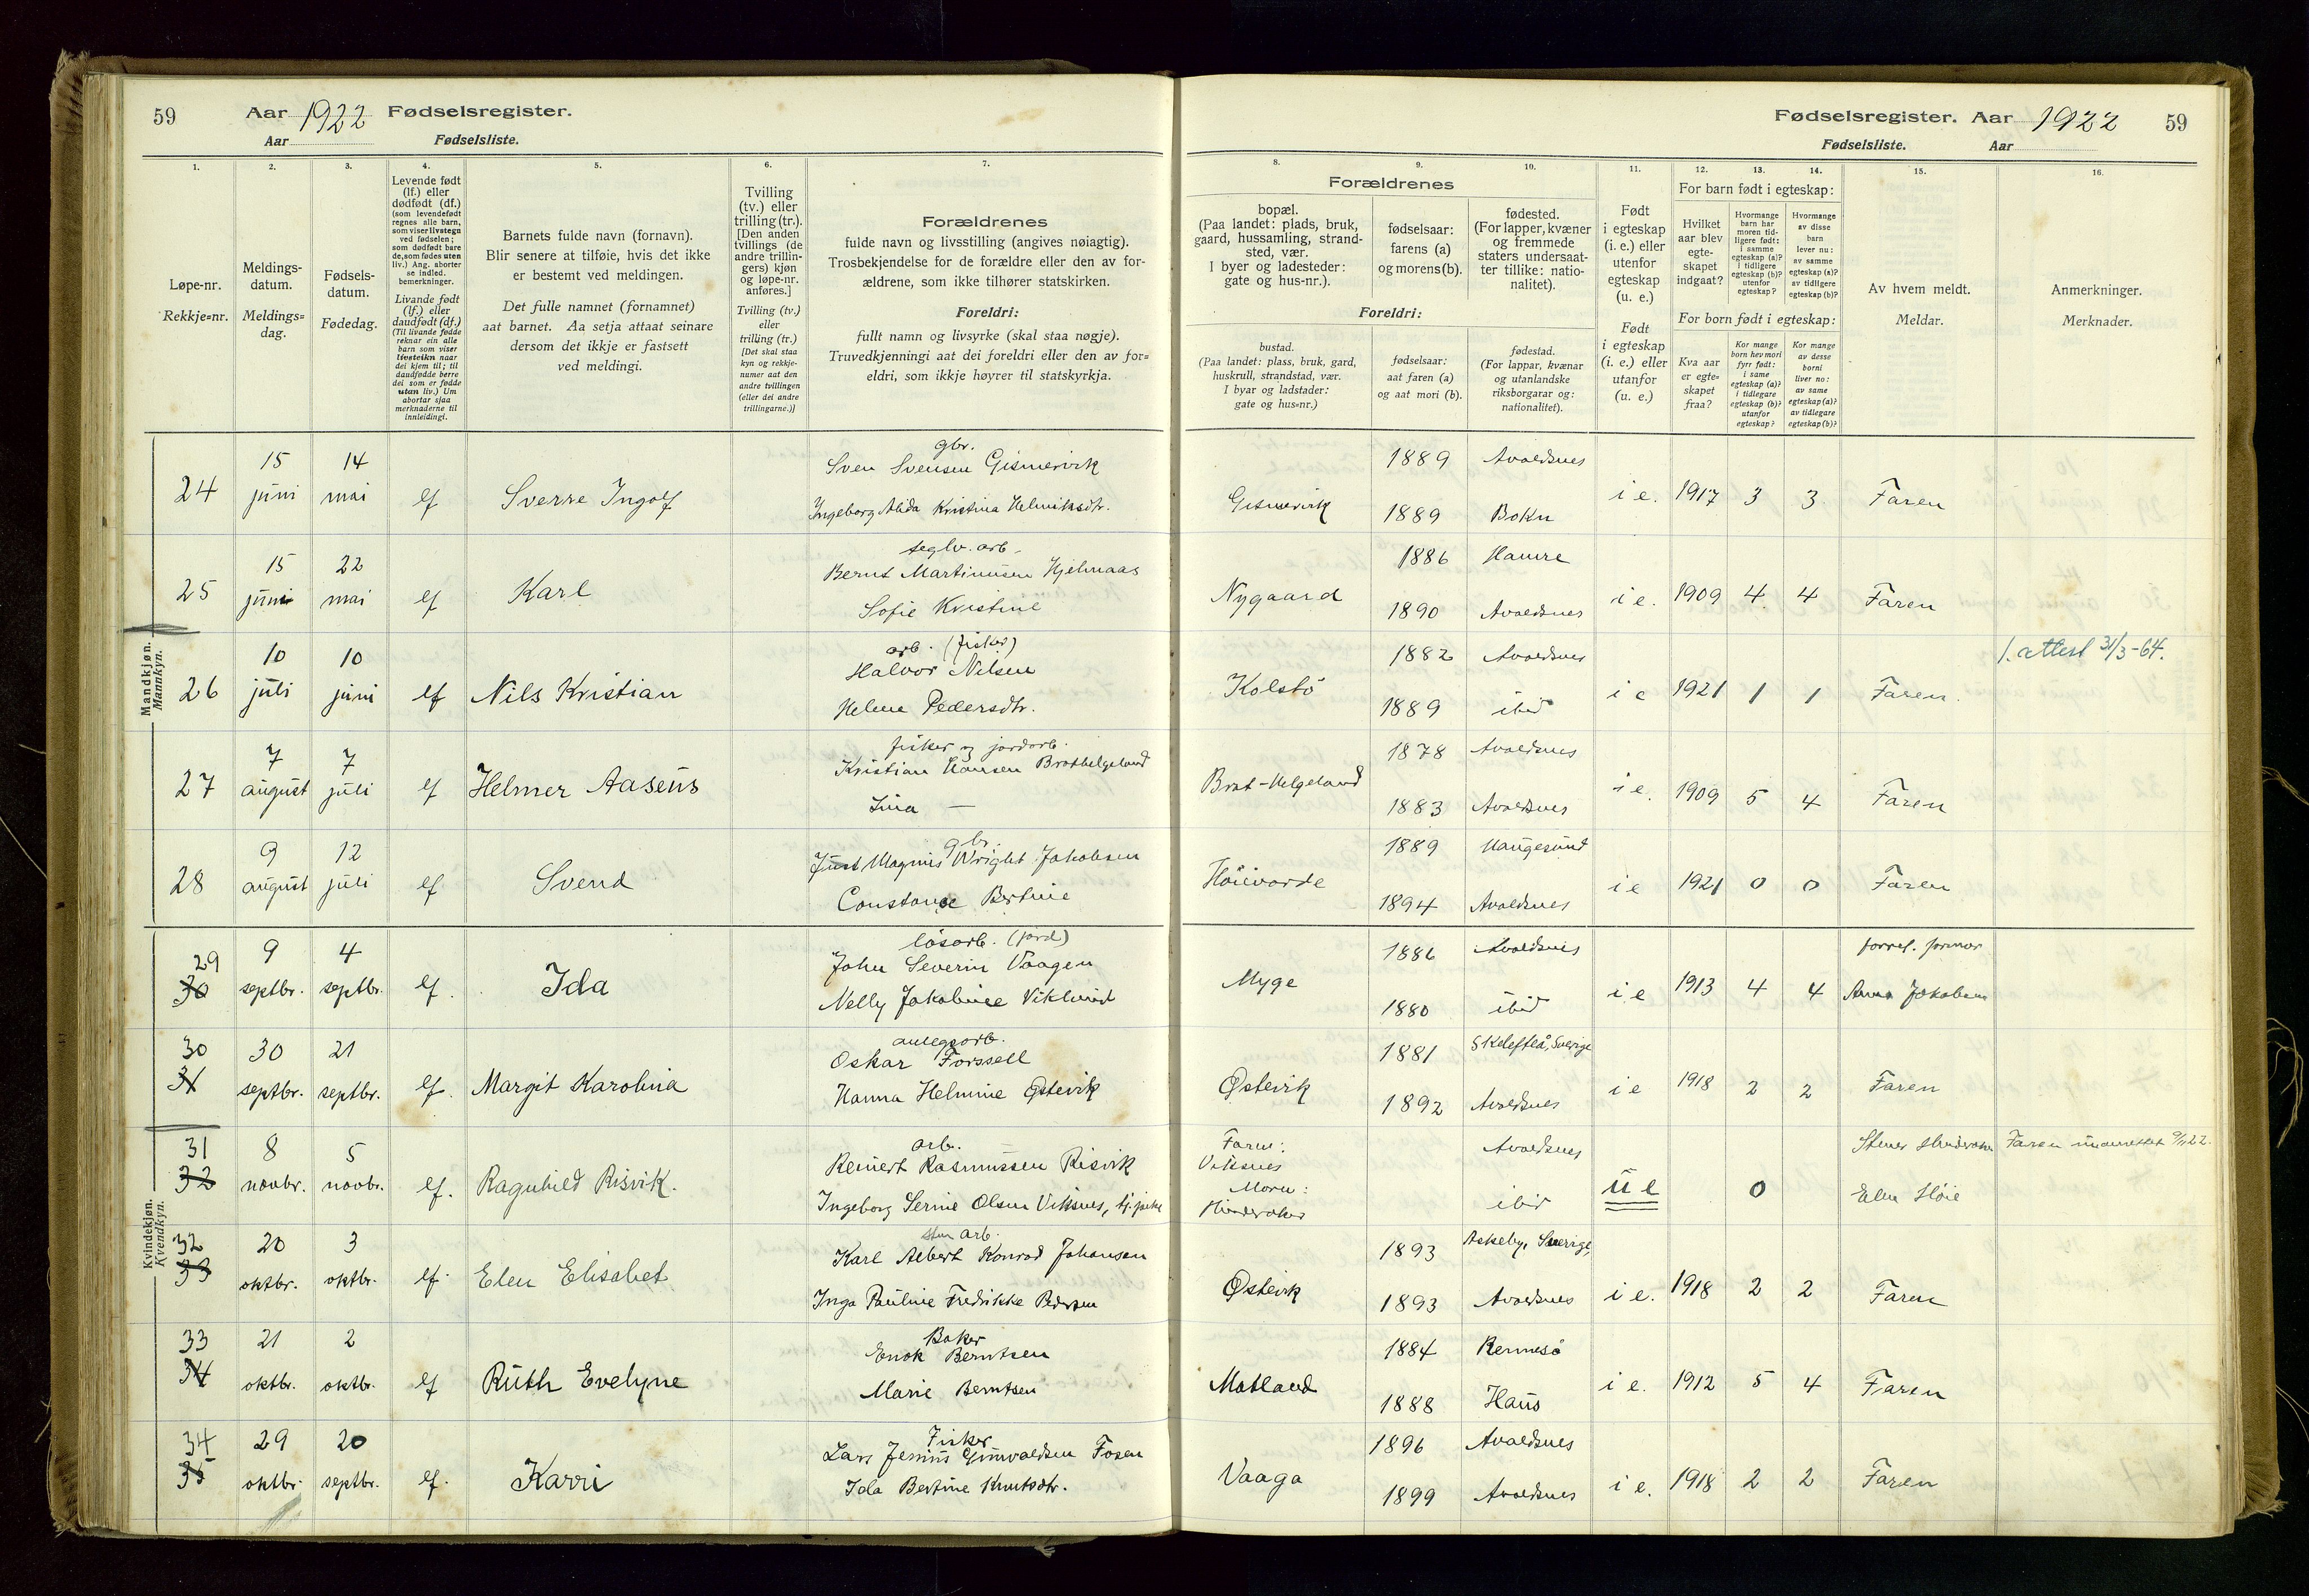 59
Aar 1922 Fødselsregister.
Aar Fødselsliste.
1. 2. 3. 4. 5. 6. 7.
Løpe-nr.
Rekkje=nr.
Meldings-
datum.
Meldings=
dag.
Fødsels-
datum.
Fødedag.
Levende født
(lf.) eller
dødfødt (df.)
(som levendefødt
regnes alle barn,
som viser livstegn
ved fødselen;
som dødfødt bare
de, som fødes uten
liv.) Ang. aborter
se indled.
bemerkninger.
Livande født
(lf.) eller
daudfødt (df.)
(Til livande fødde
reknar ein alle
barn som viser
livsteikn naar
dei kjem til; til
daudfødde berre
dei som er fødde
utan liv.) Um
abortar sjaa
merknaderne til
innleidingi.
Barnets fulde navn (fornavn).
Blir senere at tilføie, hvis det ikke
er bestemt ved meldingen.
Det fulle namnet (fornamnet)
aat barnet. Aa setja attaat seinare
dersom det ikkje er fastsett
ved meldingi.
Tvilling
(tv.) eller
trilling (tr.).
[Den anden
tvillings (de
andre trillin-
gers) kjøn
og løpe-nr.
anføres.]
Tvilling (tv.)
eller
trilling (tr.)
[Det skal staa
kyn og rekkje-
numer aat den
andre tvillingen
(eller dei andre
trillingarne.)]
Forældrenes
fulde navn og livsstilling (angives nøiagtig).
Trosbekjendelse for de forældre eller den av for-
ældrene, som ikke tilhører statskirken.
Foreldri:
fullt namn og livsyrke (skal staa nøgje).
Truvedkjenningi aat dei foreldri eller den av for=
eldri, som ikkje høyrer til statskyrkja.
Mandkjøn.
Mannkyn.
24 15 juni 14 mai lf Sverre Ingolf
gbr.
Sven Svensen Gismervik
Ingeborg Alida Kristina Helmiksdtr.
25 15 juni 22 mai lf Karl
teglv. arb.
Bernt Martinusen Hjelmaas
Sofie Kristine
26 10 juli 10 juni lf Nils Kristian
arb. (fisker)
Halvor Nilsen
Helene Pedersdtr.
27 7 august 7 juli lf Helmer Aasens
fisker og jordarb.
Kristian Hansen Brathelgeland
Lina —
28 9 august 12 juli lf Svend
gbr.
Just Magnus Wright Jakobsen
Constance Bertine
Kvindekjøn.
Kvendkyn.
29 30 9 septbr. 4 septbr. lf. Ida
løsarb. (jord)
John Severin Vaagen
Nelly Jakobine Viklund
30 31 30 septbr. 21 septbr. lf. Margit Karolina
anlegsarb.
Oskar Forssell
Hanna Helmine Østevik
31 32 8 novbr. 5 novbr. lf. Ragnhild Risvik.
arb.
Reinert Rasmussen Risvik
Ingeborg Serine Olsen Viksnes, tj. pike
32 33 20 oktbr. 3 oktbr. lf. Elen Elisabet
sten arb.
Karl Albert Konrad Johansen
Inga Pauline Fredrikke Pedersen
33 34 21 oktbr. 2 oktbr. lf Ruth Evelyne
Baker
Enok Berntsen
Marie Berntsen
34 35 29 oktbr. 20 septbr. lf. Karri
Fisker
Lars Jenius Gunvaldsen Fosen
Ida Bertine Knutsdtr.
Fødselsregister. Aar 1922 59
Fødselsliste. Aar
8. 9. 10. 11. 12. 13. 14. 15. 16.
Forældrenes
bopæl.
(Paa landet: plads, bruk,
gaard, hussamling, strand-
sted, vær.
I byer og ladesteder:
gate og hus-nr.).
fødselsaar:
farens (a)
og morens (b).
fødested.
(For lapper, kvæner
og fremmede
staters undersaat-
ter tillike: natio-
nalitet).
Foreldri:
bustad.
(Paa landet: plass, bruk, gard,
huskrull, strandstad, vær.
I byar og ladstader:
gate og hus=nr.)
fødselsaar:
aat faren (a)
og aat mori (b).
fødestad.
(For lappar, kvænar
og utanlandske
riksborgarar og:
nationalitet).
Født
i egteskap
(i. e.) eller
utenfor
egteskap
(u. e.)
Født
i egteskap
(i. e.) eller
utanfor
(u. e.)
For barn født i egteskap:
Hvilket
aar blev
egte-
skapet
indgaat?
Hvormange
barn har
moren tid-
ligere født:
i samme
egteskap (a)?
i tidligere
egteskap (b)?
utenfor
egteskap?
Hvormange
av disse
barn
lever nu:
av samme
egteskap (a)?
av tidligere
egteskap (b)?
For born født i egteskap:
Kva aar
er egte=
skapet
fraa?
Kor mange
born hev mori
fyrr født:
i same
egteskap (a)?
i tidlegare
egteskap (b)?
utanfor
egteskap?
Kor mange
av desse
borni
liver no:
av same
egteskap (a)?
av tidlegare
egteskap (b)?
Av hvem meldt.
Meldar.
Anmerkninger.
Merknader.
Gismervik 1889 Avaldsnes 1889 Bokn i e. 1917 3 3 Faren
Nygaard 1886 Hamre 1890 Avaldsnes i e. 1909 4 4 Faren
Kolstø 1882 Avaldsnes 1889 ibid i e 1921 1 1 Faren. 1. attest 31/3-64.
Brat-Helgeland 1878 Avaldsnes 1883 Avaldsnes i e. 1909 5 4 Faren
Høievarde 1889 Haugesund 1894 Avaldsnes i e 1921 0 0 Faren
Myge 1886 Avaldsnes 1880 ibid i e 1913 4 4 forrel. jormor Anna Jakobsen
Østevik 1881 Skelefteå, Sverige 1892 Avaldsnes i e 1918 2 2 Faren
Faren: Viksnes Moren: Avaldsnes ibid u e 0 Elen Høie Faren underrettet 9/11 22.
Østevik 1893 Askeby, Sverige, 1893 Avaldsnes i e. 1918 2 2 Faren
Matland 1884 Rennesø 1888 Haus i e. 1912 5 4 Faren
Vaaga 1896 Avaldsnes 1899 Avaldsnes i e. 1918 2 2 Faren